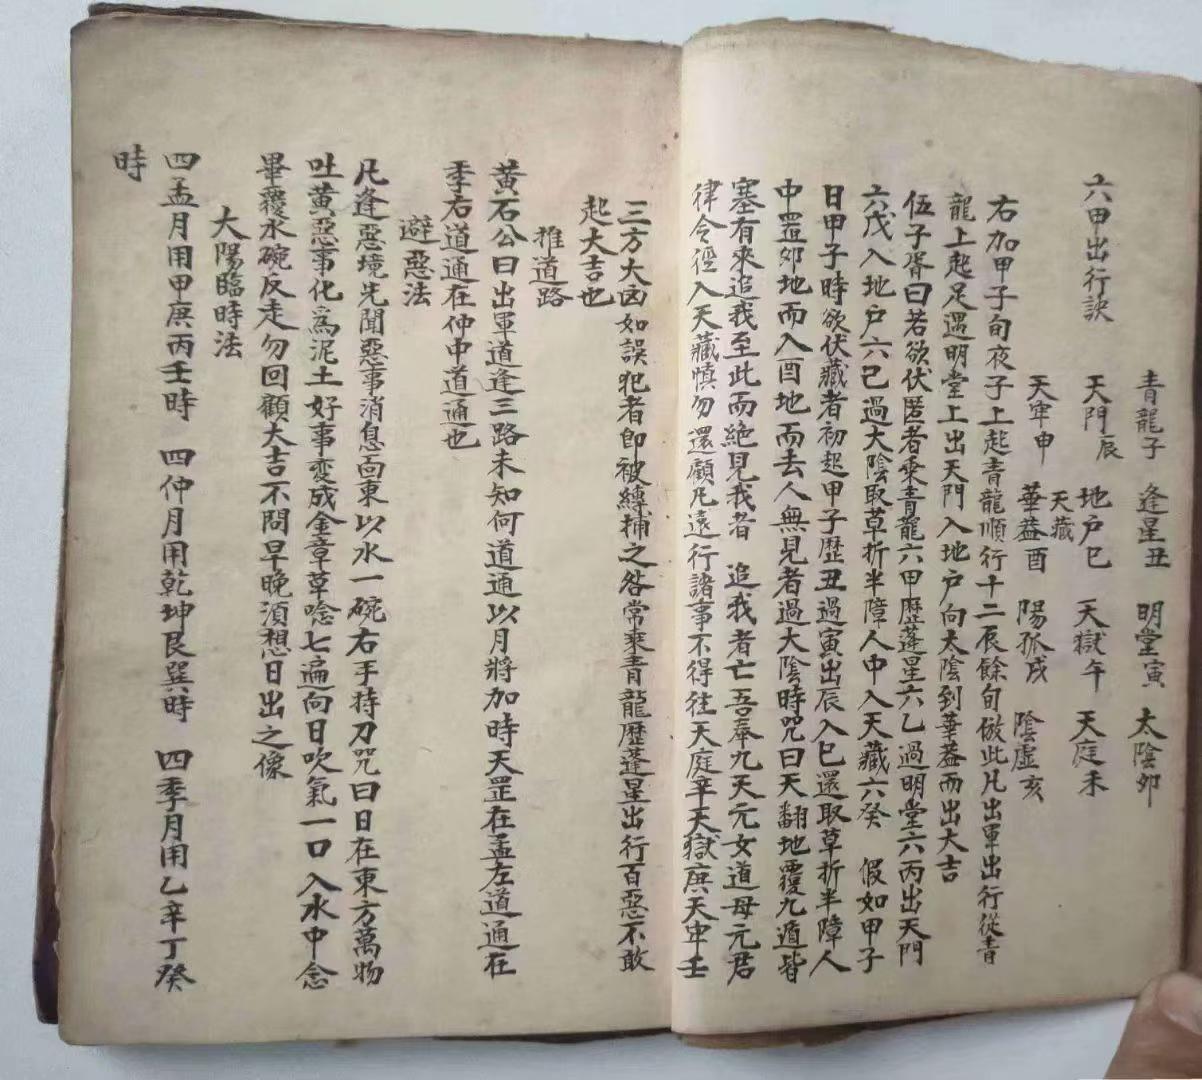 青龍子　逢星丑　明堂寅　太陰卯
六甲出行訣　天門辰　地户巳　天獄午　天庭未
天藏
天牢申　華蓋酉　陽孤戌　陰虛亥
右加甲子旬夜子上起青龍順行十二辰餘旬倣此凡出軍出行從青
龍上起足遇明堂上出天門入地户向太陰到華蓋而出大吉
伍子胥曰若欲伏匿者乘青龍六甲歷蓬星六乙過明堂六丙出天門
六戊入地户六己過大陰取草折半障人中入天藏六癸　假如甲子
日甲子時欲伏藏者初起甲子歷丑過寅出辰入巳還取草折半障人
中置卯地而入酉地而去人無見者過大陰時咒曰天翻地覆九道皆
塞有來追我至此而絶見我者　追我者亡吾奉九天元女道母元君
律令徑入天藏慎勿還顧凡遠行諸事不得往天庭辛天獄庚天牢壬
三方大凶如誤犯者即被縛捕之咎常乘青龍歷蓬星出行百惡不敢
起大吉也
推道路
黄石公曰出軍道逢三路未知何道通以月將加時天罡在孟左道通在
季右道通在仲中道通也
避惡法
凡逢惡境先聞惡事消息面東以水一碗右手持刀咒曰日在東方萬物
吐黄惡事化爲泥土好事变成金章草唸七遍向日吹氣一口入水中念
畢覆水碗反走勿回顧大吉不問早晚湏想日出之像
大陽臨時法
四孟月用甲庚丙壬時　四仲月用乾坤艮巽時　四季月用乙辛丁癸
時